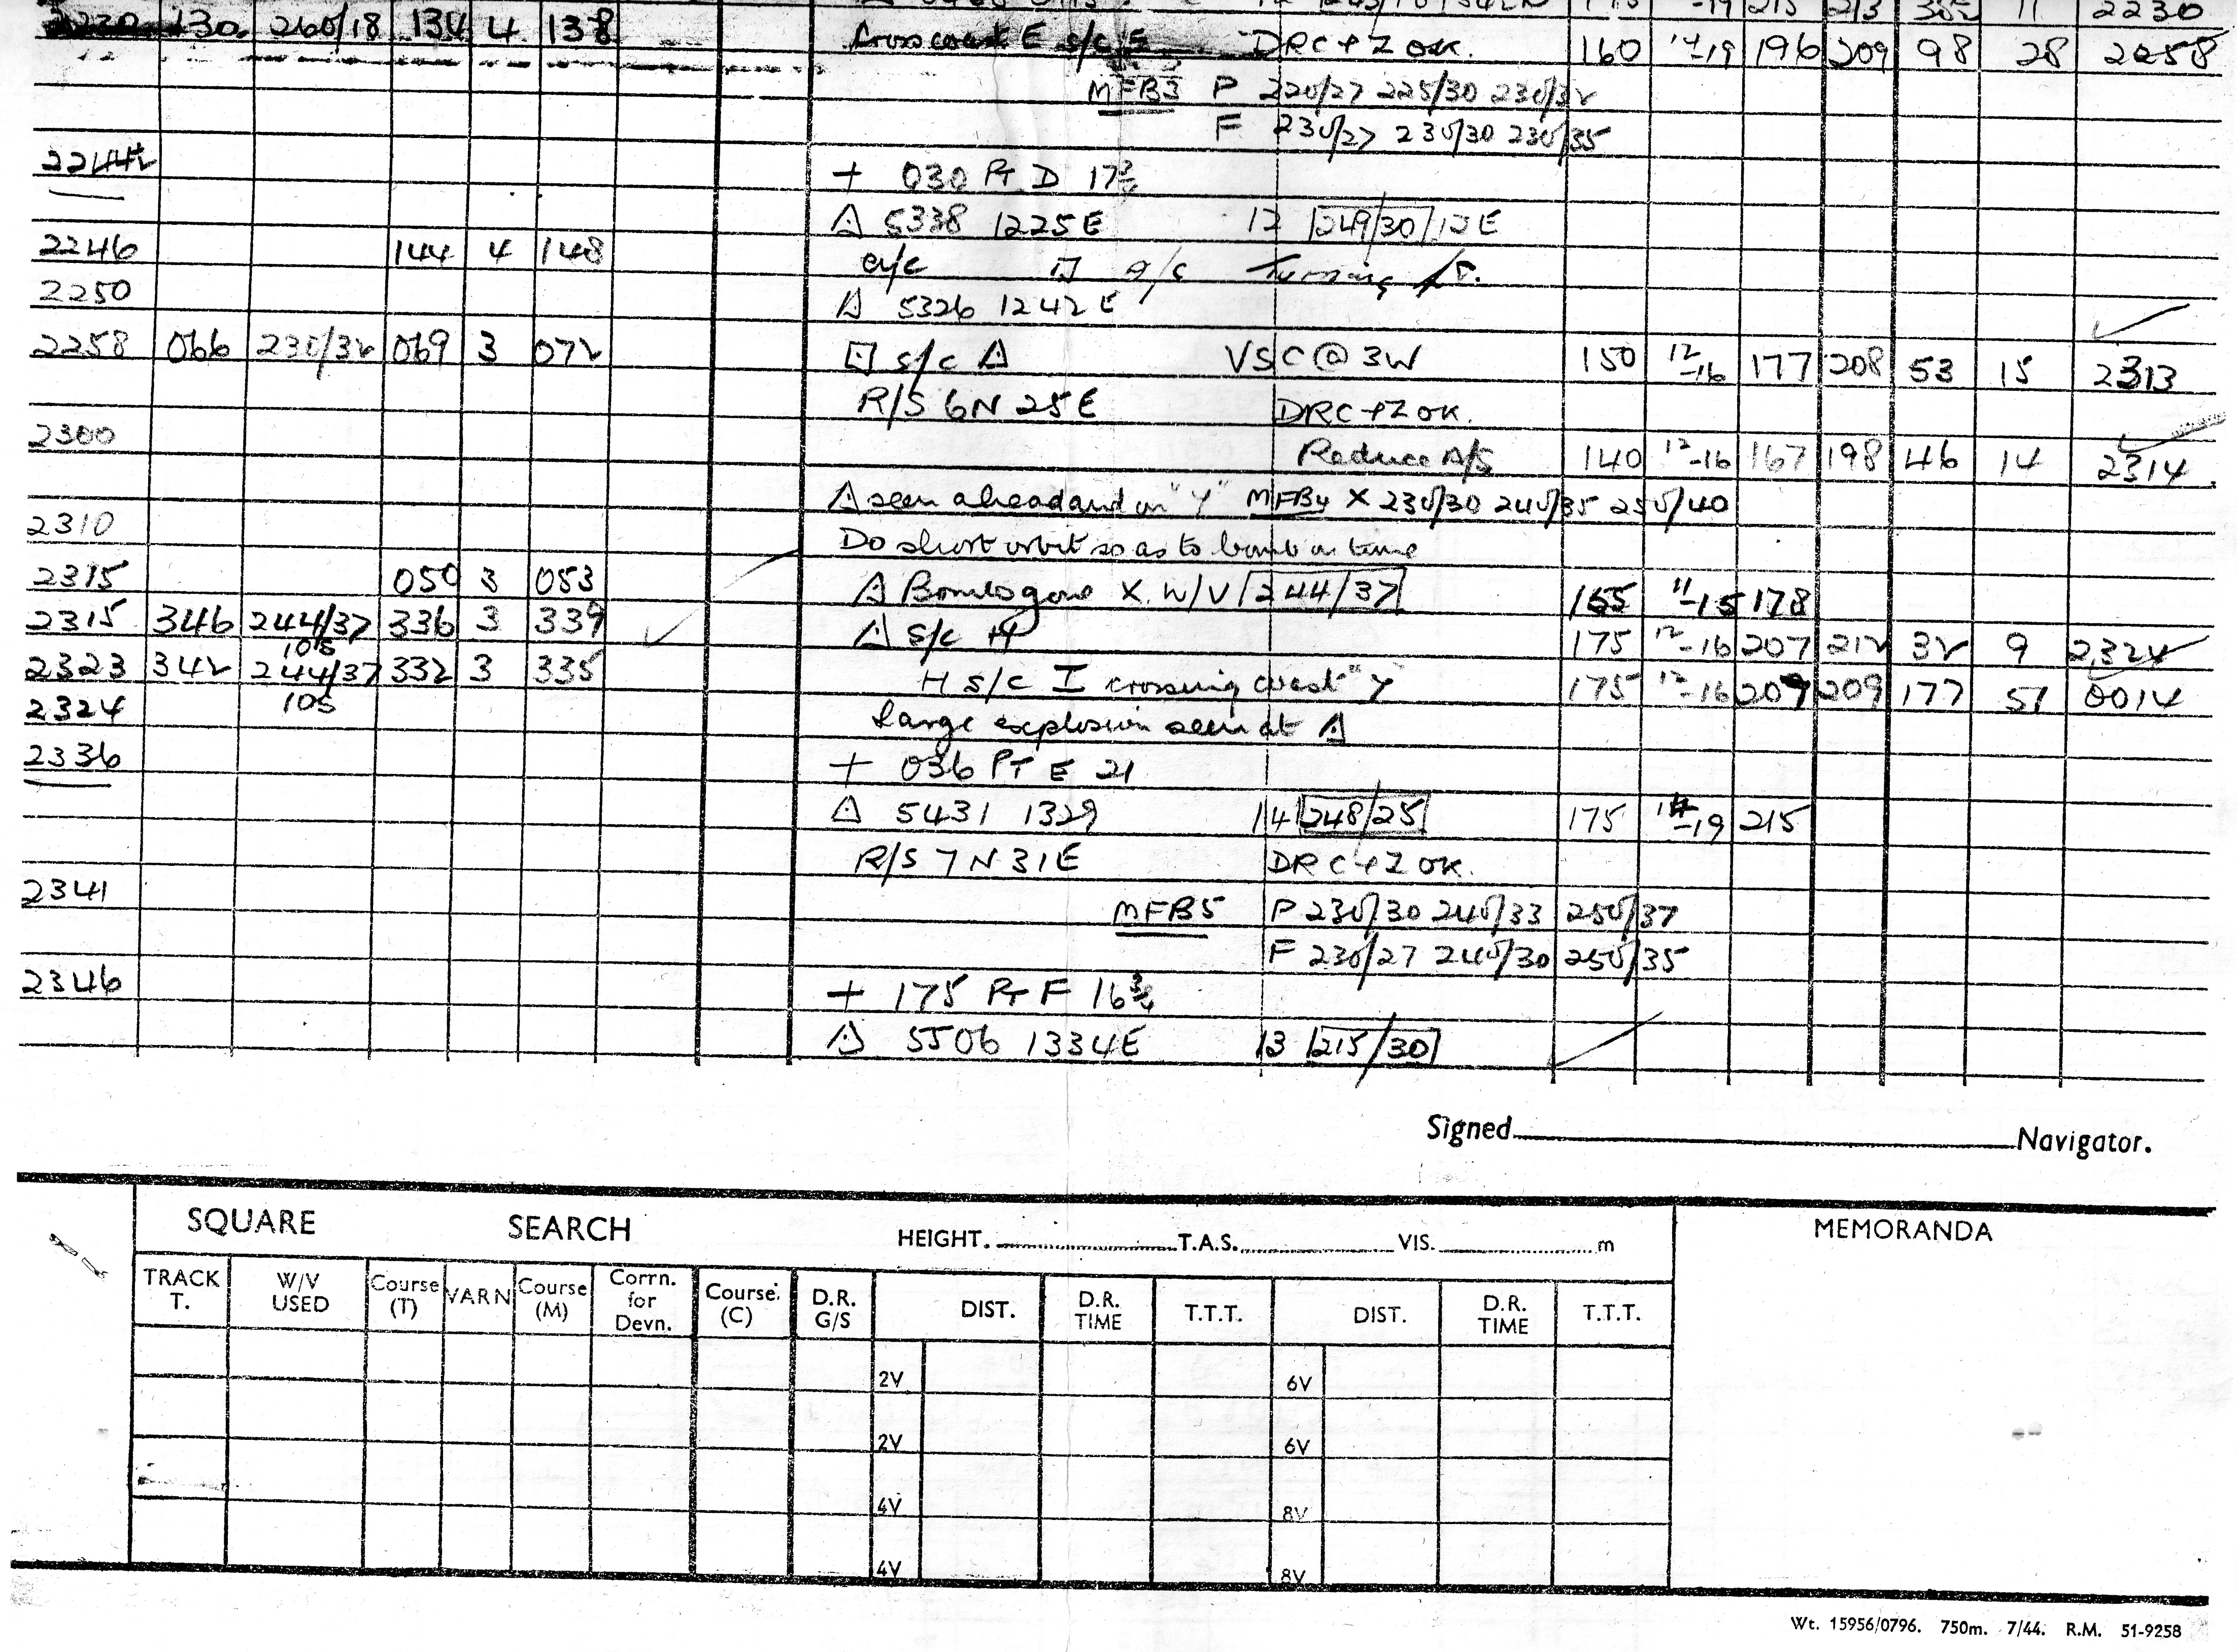 2230 130 260/18 134 4 138 Cross coast E s/c F DRC + Z OK. 160 14 -19 196 209 98 28 2258
MFB3 P 220/27 225/30 230/32
F 230/27 230/30 230/35
2244½
+ 030 PT D 17¾
△ 5338 1225E 12 249/30 12E
2246 144 4 148 a/c
2250 △ 5326 1242E
2258 066 230/32 069 3 072 s/c △ VSC @ 3W 150 12 -16 177 208 53 15 2313
R/S 6N 25E DRC + Z OK.
2300 Reduce A/S 140 12 -16 167 198 46 14 2314
△ seen ahead and on "Y" MFB4 X 230/30 240/35 250/40
2310 Do short orbit so as to bomb on time
2315 050 3 053 △ Bombs gone X. W/V 244/37 165 11 -15 178
2315 346 244/37 336 3 339 △ s/c H 175 12 -16 207 212 32 9 2324
105
2323 342 244/37 332 3 335 H s/c I crossing coast "Y" 175 12 -16 209 209 177 51 0014
105
2324 Large explosion seen at △
2336 + 036 PT E 21
△ 5431 1329 14 248/25 175 14 -19 215
R/S 7N 31E DRC + Z OK.
2341 MFB5 P 230/30 240/33 250/37
F 230/27 240/30 250/35
2346 + 175 PT F 16¾
△ 5506 1334E 13 215/30
Signed Navigator.
SQUARE SEARCH HEIGHT. T.A.S. VIS. m MEMORANDA
TRACK T. W/V USED Course (T) VARN Course (M) Corrn. for Devn. Course. (C) D.R. G/S DIST. D.R. TIME T.T.T. DIST. D.R. TIME T.T.T.
2V 6V
2V 6V
4V 8V
4V 8V
Wt. 15956/0796. 750m. 7/44. R.M. 51-9258